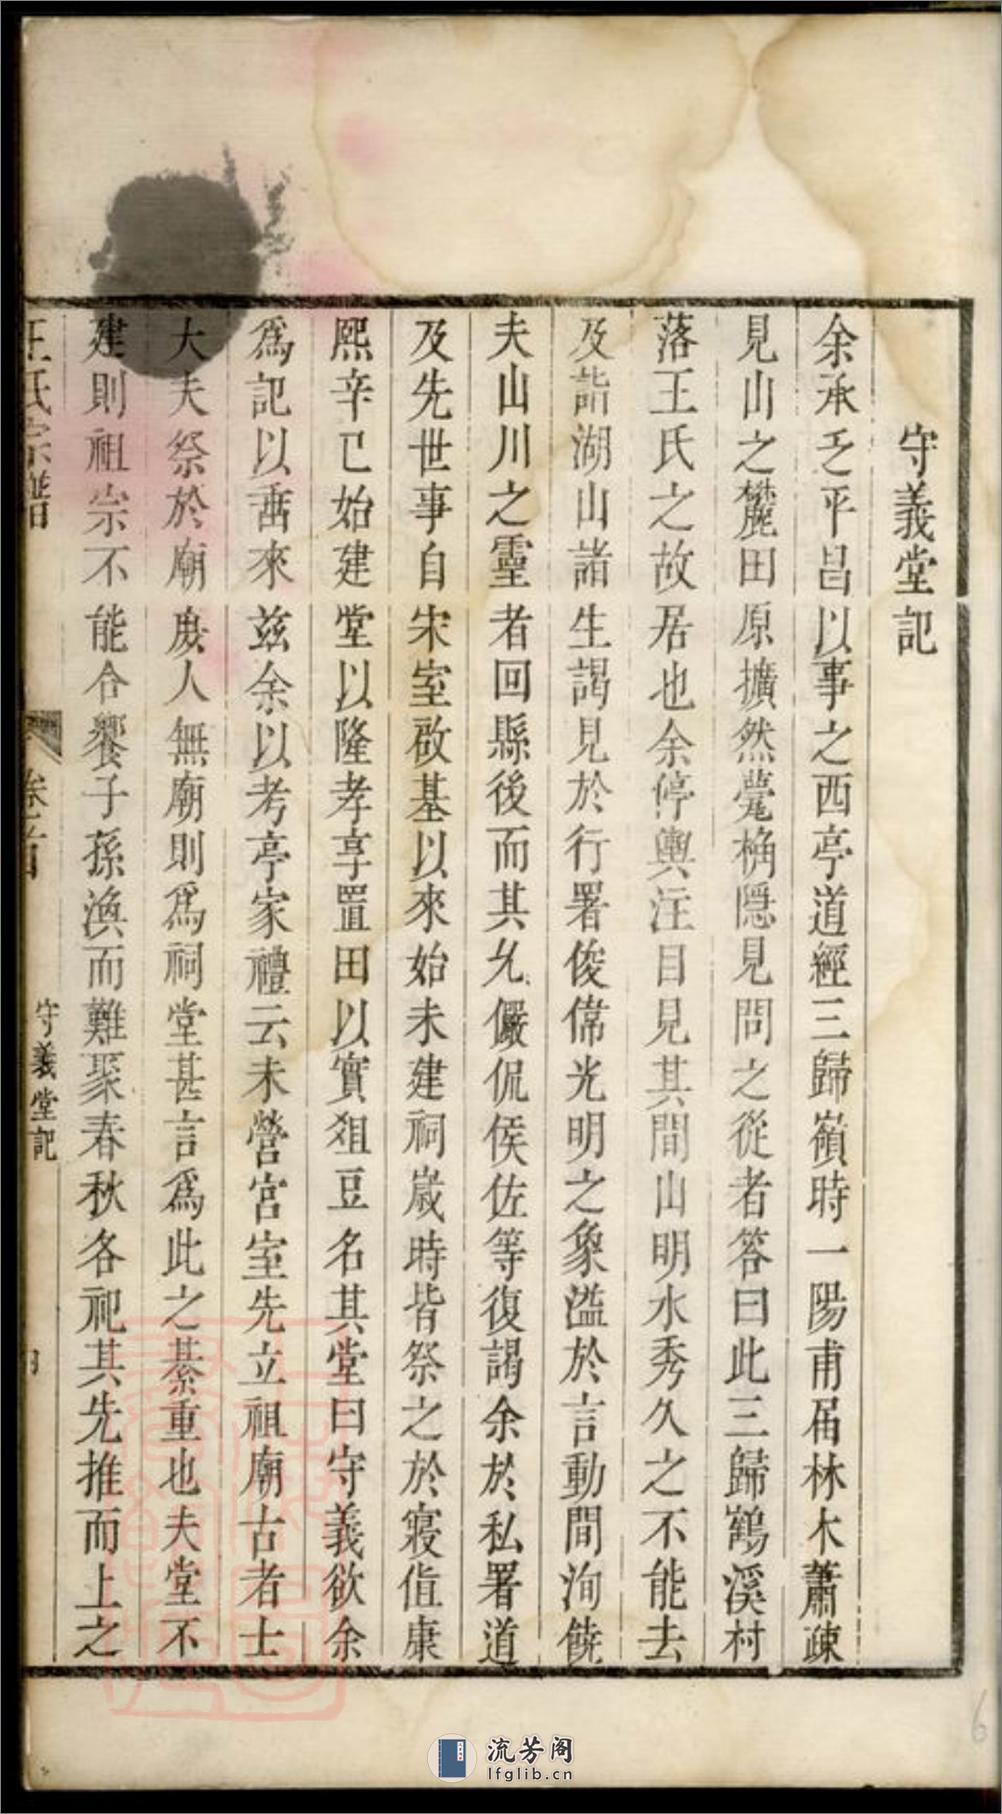 守義堂記
余承乏平昌以事之西亭道經三歸嶺時一陽甫届林木蕭疎
見山之麓田原擴然甍桷隱見問之從者答曰此三歸鶴溪村
落王氏之故居也余停輿注目見其間山明水秀久之不能去
及詣湖山諸生謁見於行署俊偉光明之象溢於言動間洵饒
夫山川之靈者回縣後而其允儼侃侯佐等復謁余於私署道
及先世事自宋室啟基以來始未建祠歲時皆祭之於寢值康
熙辛巳始建堂以隆孝享置田以實俎豆名其堂曰守義欲余
為記以畱來兹余以考亭家禮云未營宫室先立祖廟古者士
大夫祭於廟庶人無廟則為祠堂甚言為此之綦重也夫堂不
建則祖宗不能合饗子孫渙而難聚春秋各祀其先推而上之
王氏宗譜
卷之首
守義堂記
6
流芳阁
lfglib.cn